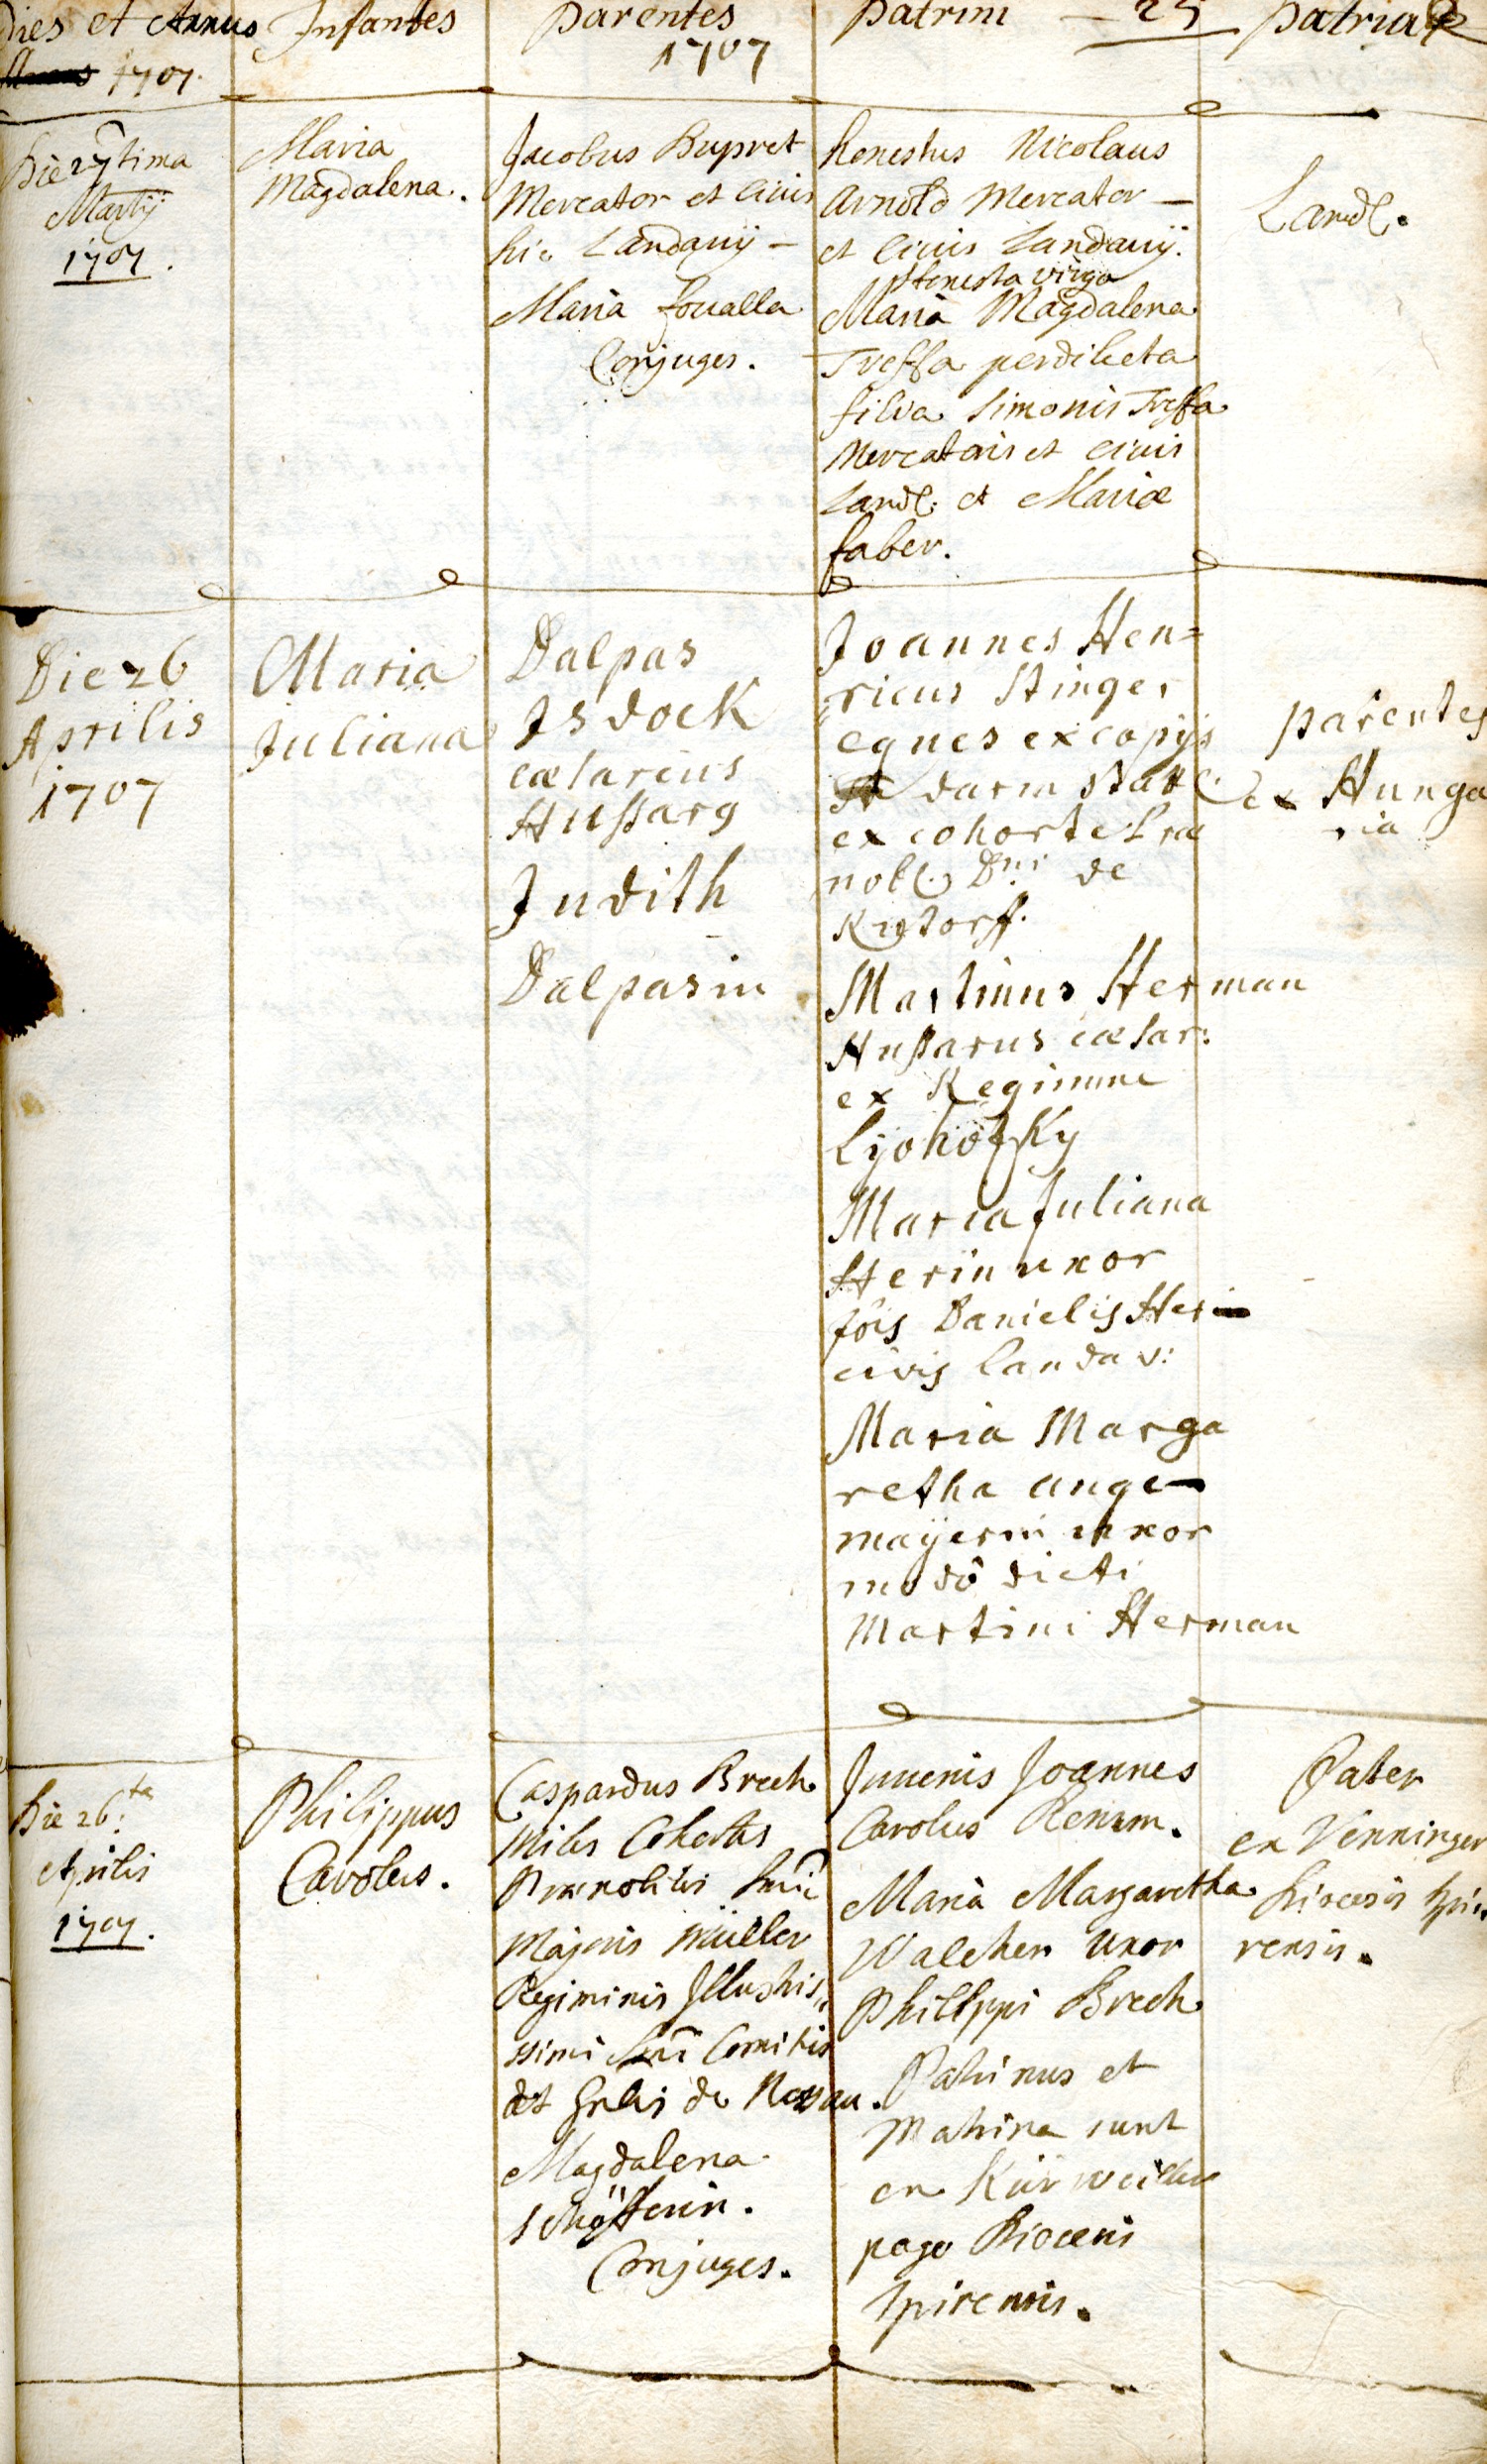 Dies et Annus
1707.
Infantes
Parentes
1707
Patrini — 25
Patria
Die 27tima
Martij
1707.
Maria
Magdalena.
Jacobus Bupret
Mercator et Civis
hic Landavij —
Maria
Conjuges.
honestus Nicolaus
Arnold Mercator —
et Civis Landavij.
Honesta virgo
Maria Magdalena
Treffa perdilecta
filia Simonis Treffa
Mercatoris et Civis
Land. et Mariæ
faber.
Land.
Die 26
Aprilis
1707
Maria
Juliana
Dalpas
Isdock
cæsareus
Hussarg
Judith
Dalpasin
Joannes Hen=
ricus Stinger
eques ex copijs
darmstatt.
ex cohorte Præ
nob. Dni de
Martinus Herman
Hussarus cæsar:
ex Regimine
Maria Juliana
Herin uxor
Jois Danielis Her
civis Landav:
Maria Marga
retha ange—
mayerin uxor
modô dicti
Martini Herman
parentes
ex Hunga
ria
Die 26:ta
Aprilis
1707.
Philippus
Carolus.
Caspardus Brech
Miles Cohortis
Prænobilis Dni
Majoris Müller
Regiminis Illustris,,
simi Dni Comitis
de Nassau.
Magdalena
Conjuges.
Juvenis Joannes
Carolus
Maria Margaretha
Walcher uxor
Philippi Brech
Patrinus et
Matrina sunt
ex Kürweiller
pago Diocesis
Spirensis.
Pater
ex Venninger
Diocesis Spi,,
rensis.